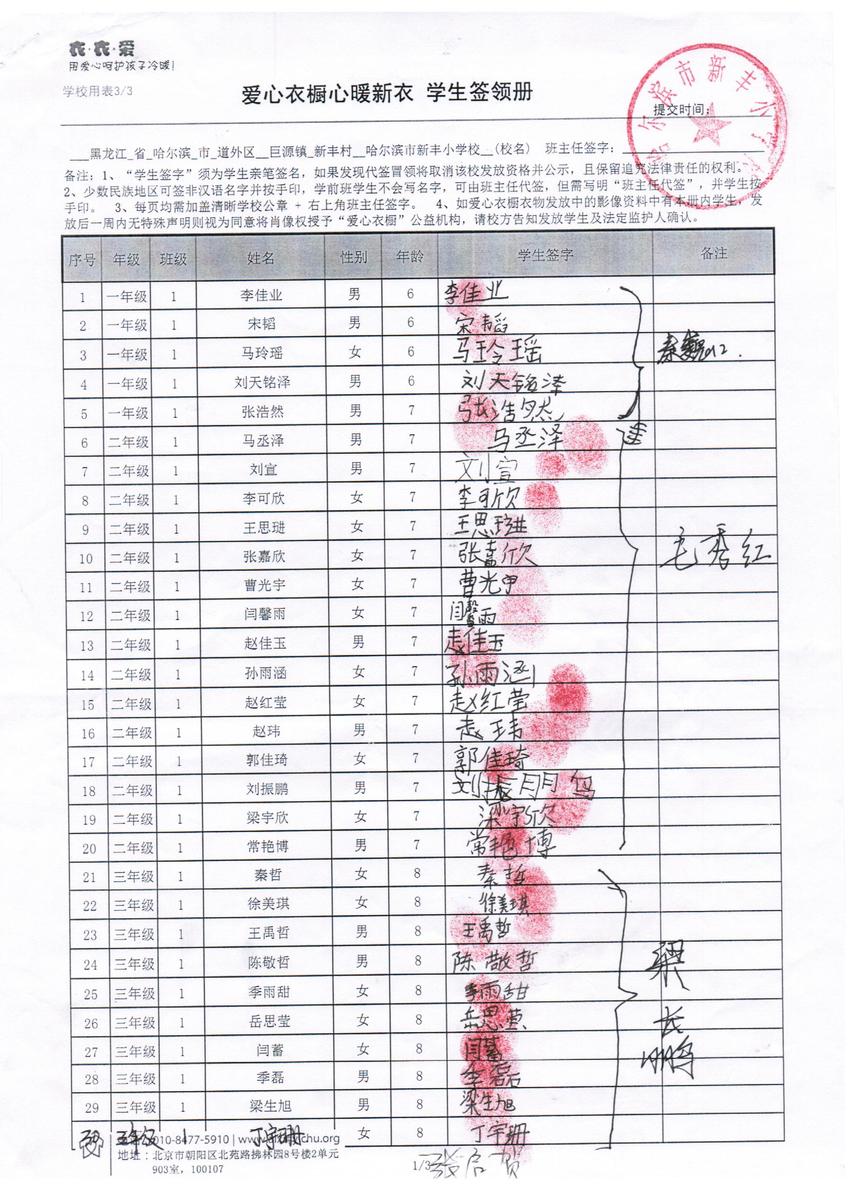 衣·衣·爱
用爱心呵护孩子冷暖!
学校用表3/3
爱心衣橱心暖新衣 学生签领册
提交时间:
哈尔滨市新丰小学
黑龙江_省_哈尔滨_市_道外区__巨源镇_新丰村__哈尔滨市新丰小学校__(校名) 班主任签字:
备注:1、“学生签字”须为学生亲笔签名,如果发现代签冒领将取消该校发放资格并公示,且保留追究法律责任的权利。
2、少数民族地区可签非汉语名字并按手印,学前班学生不会写名字,可由班主任代签,但需写明“班主任代签”,并学生按
手印。 3、每页均需加盖清晰学校公章 + 右上角班主任签字。 4、如爱心衣橱衣物发放中的影像资料中有本册内学生,发
放后一周内无特殊声明则视为同意将肖像权授予“爱心衣橱”公益机构,请校方告知发放学生及法定监护人确认。
序号 年级 班级 姓名 性别 年龄 学生签字 备注
1 一年级 1 李佳业 男 6 李佳业
2 一年级 1 宋韬 男 6 宋韬
3 一年级 1 马玲瑶 女 6 马玲瑶
4 一年级 1 刘天铭泽 男 6 刘天铭泽
5 一年级 1 张浩然 男 7 张浩然
6 二年级 1 马丞泽 男 7 马丞泽
7 二年级 1 刘宣 男 7 刘宣
8 二年级 1 李可欣 女 7 李可欣
9 二年级 1 王思琎 女 7 王思琎
10 二年级 1 张嘉欣 女 7 张嘉欣 毛秀红
11 二年级 1 曹光宇 女 7 曹光宇
12 二年级 1 闫馨雨 女 7 闫馨雨
13 二年级 1 赵佳玉 男 7 赵佳玉
14 二年级 1 孙雨涵 女 7 孙雨涵
15 二年级 1 赵红莹 女 7 赵红莹
16 二年级 1 赵玮 男 7 赵玮
17 二年级 1 郭佳琦 女 7 郭佳琦
18 二年级 1 刘振鹏 男 7 刘振鹏
19 二年级 1 梁宇欣 女 7 梁宇欣
20 二年级 1 常艳博 男 7 常艳博
21 三年级 1 秦哲 女 8 秦哲
22 三年级 1 徐美琪 女 8 徐美琪
23 三年级 1 王禹哲 男 8 王禹哲
24 三年级 1 陈敬哲 男 8 陈敬哲 梁
25 三年级 1 季雨甜 女 8 季雨甜
26 三年级 1 岳思莹 女 8 岳思莹 长
27 三年级 1 闫蓄 女 8 闫蓄 鹏
28 三年级 1 季磊 男 8 季磊
29 三年级 1 梁生旭 男 8 梁生旭
1 丁宇珊 女 8 丁宇珊
010-8477-5910
chu.org
地址:北京市朝阳区北苑路拂林园8号楼2单元
903室,100107
1/3